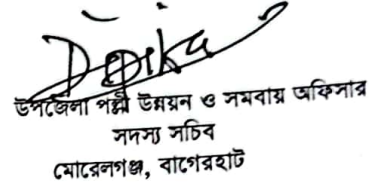 Depika
উপজেলা পল্লী উন্নয়ন ও সমবায় অফিসার
সদস্য সচিব
মোরেলগঞ্জ, বাগেরহাট